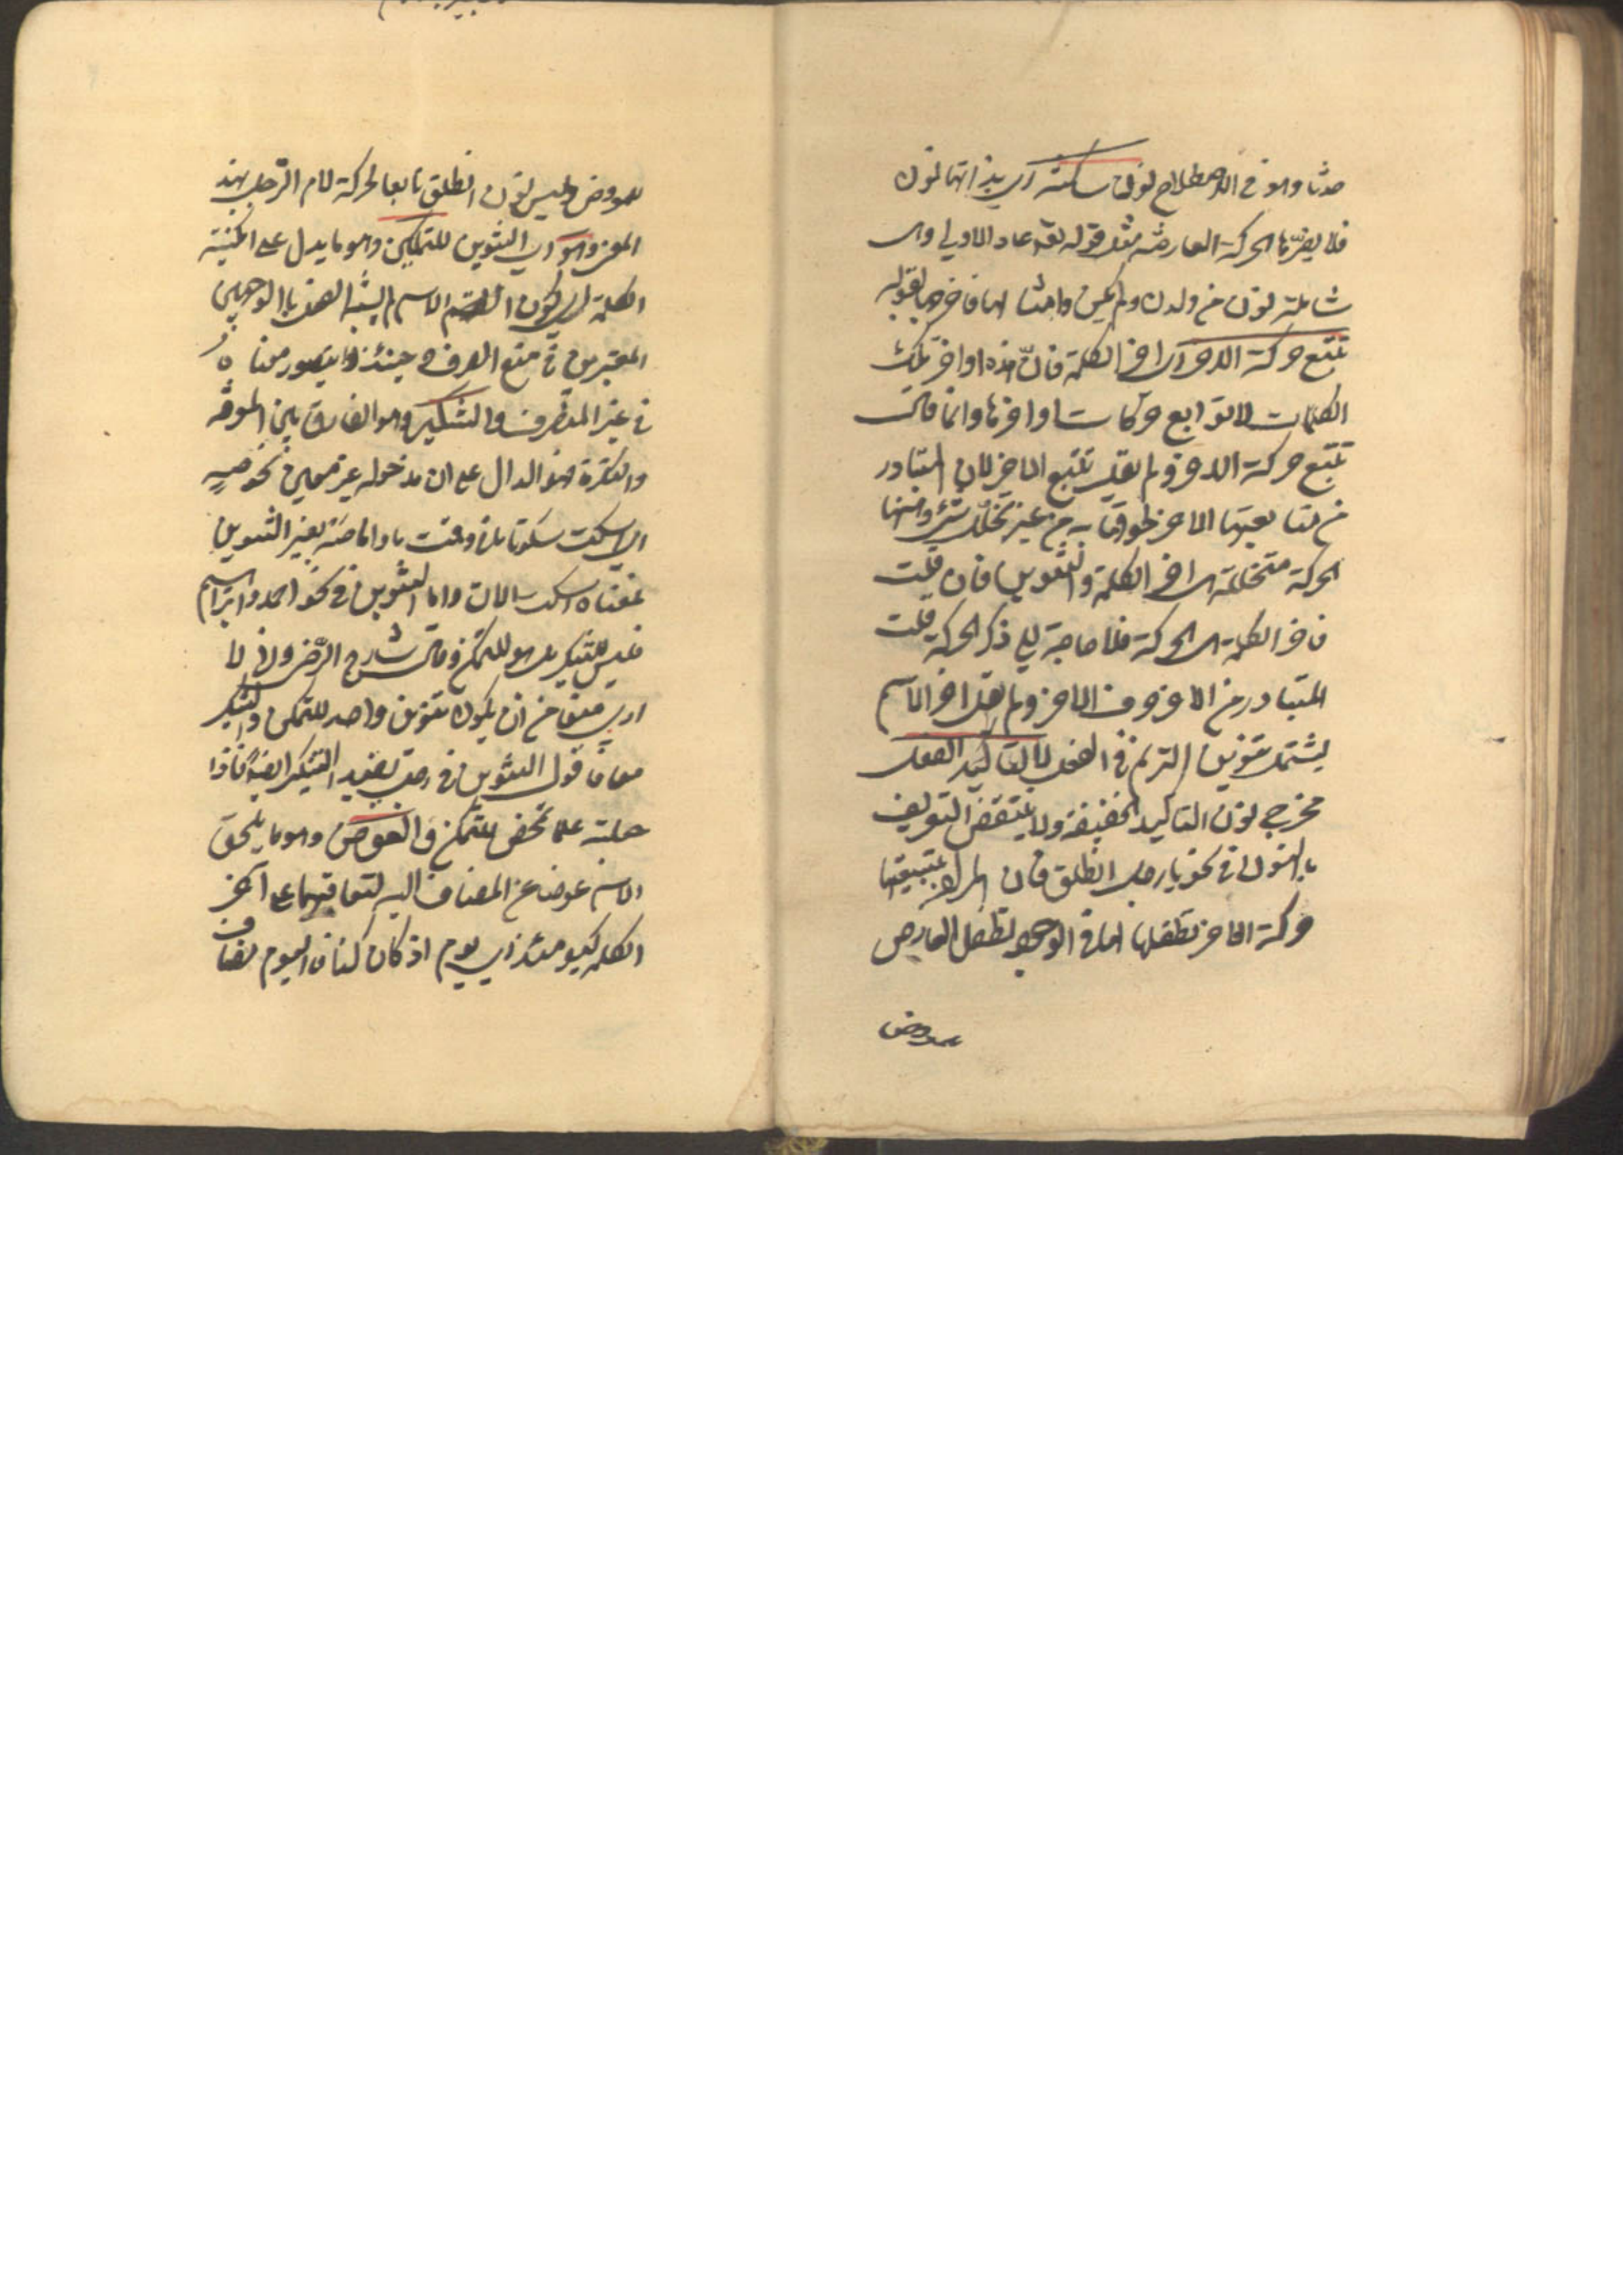 حدثا وهو في الاصطلاح نون ساكنة اي بذاتها نون
فلا يضرها الحركة العارضة مثل قوله تعالى عاد الاولى وهي
شاملة لنون من ولدن ولم يكن وامثالها فاخرجها بقوله
تتبع حركة الاخر اي اخر الكلمة فان هذه اواخر تلك
الكلمات لا توابع حركات اواخرها وانما قال
تتبع حركة الاخر ولم يقل تتبع الاخر لان المتبادر
من متابعتها الاخر لحوقها به من غير تخلل شيء وههنا
الحركة متخللة بين اخر الكلمة والتنوين فان قلت
فاخر الكلمة هي الحركة فلا حاجة الى ذكر الحركة قلت
المتبادر من الاخر حرف الاخر ولم يقل اخر الاسم
ليشتمل تنوين الترنم في الفعل لا لتاكيد الفعل
مخرج نون التاكيد الخفيفة ولا ينتقض التعريف
بالنون في نحو يا رجل انطلق فان المراد بتبعيتها
حركة الاخر تطفلها لها في الوجود تطفل العارض
للمعروض
للمعروض وليس نون انطلق تابعا لحركة لام الرجل بهذا
المعنى وهو اي التنوين للتمكن وهو ما يدل على امكنية
الكلمة اي كون الاسم لم يشبه الفعل بالوجهين
المعتبرين في منع الصرف وحينئذ لا يتصور معناه
في غير المنصرف والتنكير وهو الفارق بين المعرفة
والنكرة فهو الدال على ان مدخوله غير معين نحو صه
اي اسكت سكوتا ما في وقت ما واما صه بغير التنوين
فمعناه اسكت الان واما التنوين في نحو احمد وابراهيم
فليس للتنكير بل هو للتمكن وقال شارح الرضي وانا لا
ارى منعا من ان يكون تنوين واحد للتمكن والتنكير
معا فاقول التنوين في رجل يفيد التنكير ايضا فاذا
جعلته علما تمحض للتمكن والعوض وهو ما يلحق
الاسم عوضا عن المضاف اليه لتعاقبهما على اخر
الكلمة كيومئذ اي يوم اذ كان كذا فاليوم مضاف